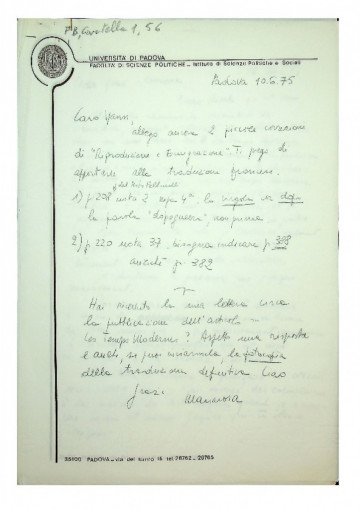 FB, Cartella 1, 56
UNIVERSITÀ DI PADOVA
FACOLTÀ DI SCIENZE POLITICHE - Istituto di Scienze Politiche e Sociali
Padova 10.5.75
Caro Yann,
allego ancora 2 piccole correzioni
di "Riproduzione e Emigrazione". Ti prego di
apportarle alla traduzione francese.
1) p. 208 nota 2 riga 4ª, la virgola va dopo
la parola "dopoguerra", non prima
2) p. 220 nota 37, bisogna indicare p. 388
anziché p. 382
Hai ricevuto la mia lettera circa
la pubblicazione dell'articolo
Les Temps Modernes? Aspetto una risposta
e anche, se puoi inviarmela la fotocopia
della traduzione definitiva Ciao
Grazie
Mariarosa
35100 PADOVA - via del Santo 14 tel. 28762 - 29765